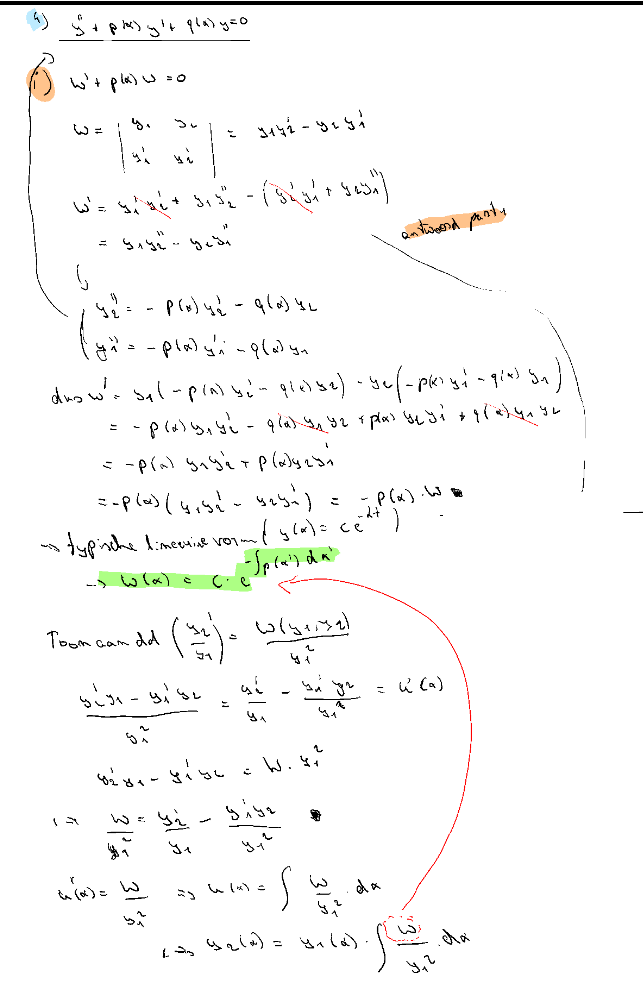 4) y'' + p(x) y' + q(x) y = 0
i) W' + p(x) W = 0
W = | y₁ y₂ ; y₁' y₂' | = y₁y₂' - y₂y₁'
W' = y₁'y₂' + y₁y₂'' - (y₂'y₁' + y₂y₁'')
= y₁y₂'' - y₂y₁''
antwoord part 1
y₂'' = - p(x) y₂' - q(x) y₂
y₁'' = - p(x) y₁' - q(x) y₁
dus W' = y₁(- p(x) y₂' - q(x) y₂) - y₂(- p(x) y₁' - q(x) y₁)
= - p(x) y₁y₂' - q(x) y₁y₂ + p(x) y₂y₁' + q(x) y₁y₂
= - p(x) y₁y₂' + p(x) y₂y₁'
= - p(x) (y₁y₂' - y₂y₁') = - p(x) · W
→ typische lineaire vorm (y(x) = Ce^{-λt})
→ W(x) = C · e^{-∫p(x') dx'}
Toon aan dd (y₂/y₁)' = W(y₁,y₂)/y₁²
(y₂'y₁ - y₁'y₂)/y₁² = y₂'/y₁ - y₁'y₂/y₁² = u'(x)
y₂'y₁ - y₁'y₂ = W · y₁²
⇒ W/y₁² = y₂'/y₁ - y₁'y₂/y₁²
u'(x) = W/y₁² ⇒ u(x) = ∫ W/y₁² · dx
⇒ y₂(x) = y₁(x) · ∫ W/y₁² · dx